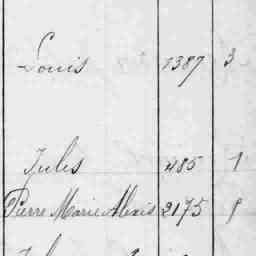 Louis 1387 3
Jules 485 1
Pierre Marie Alexis 2175 9